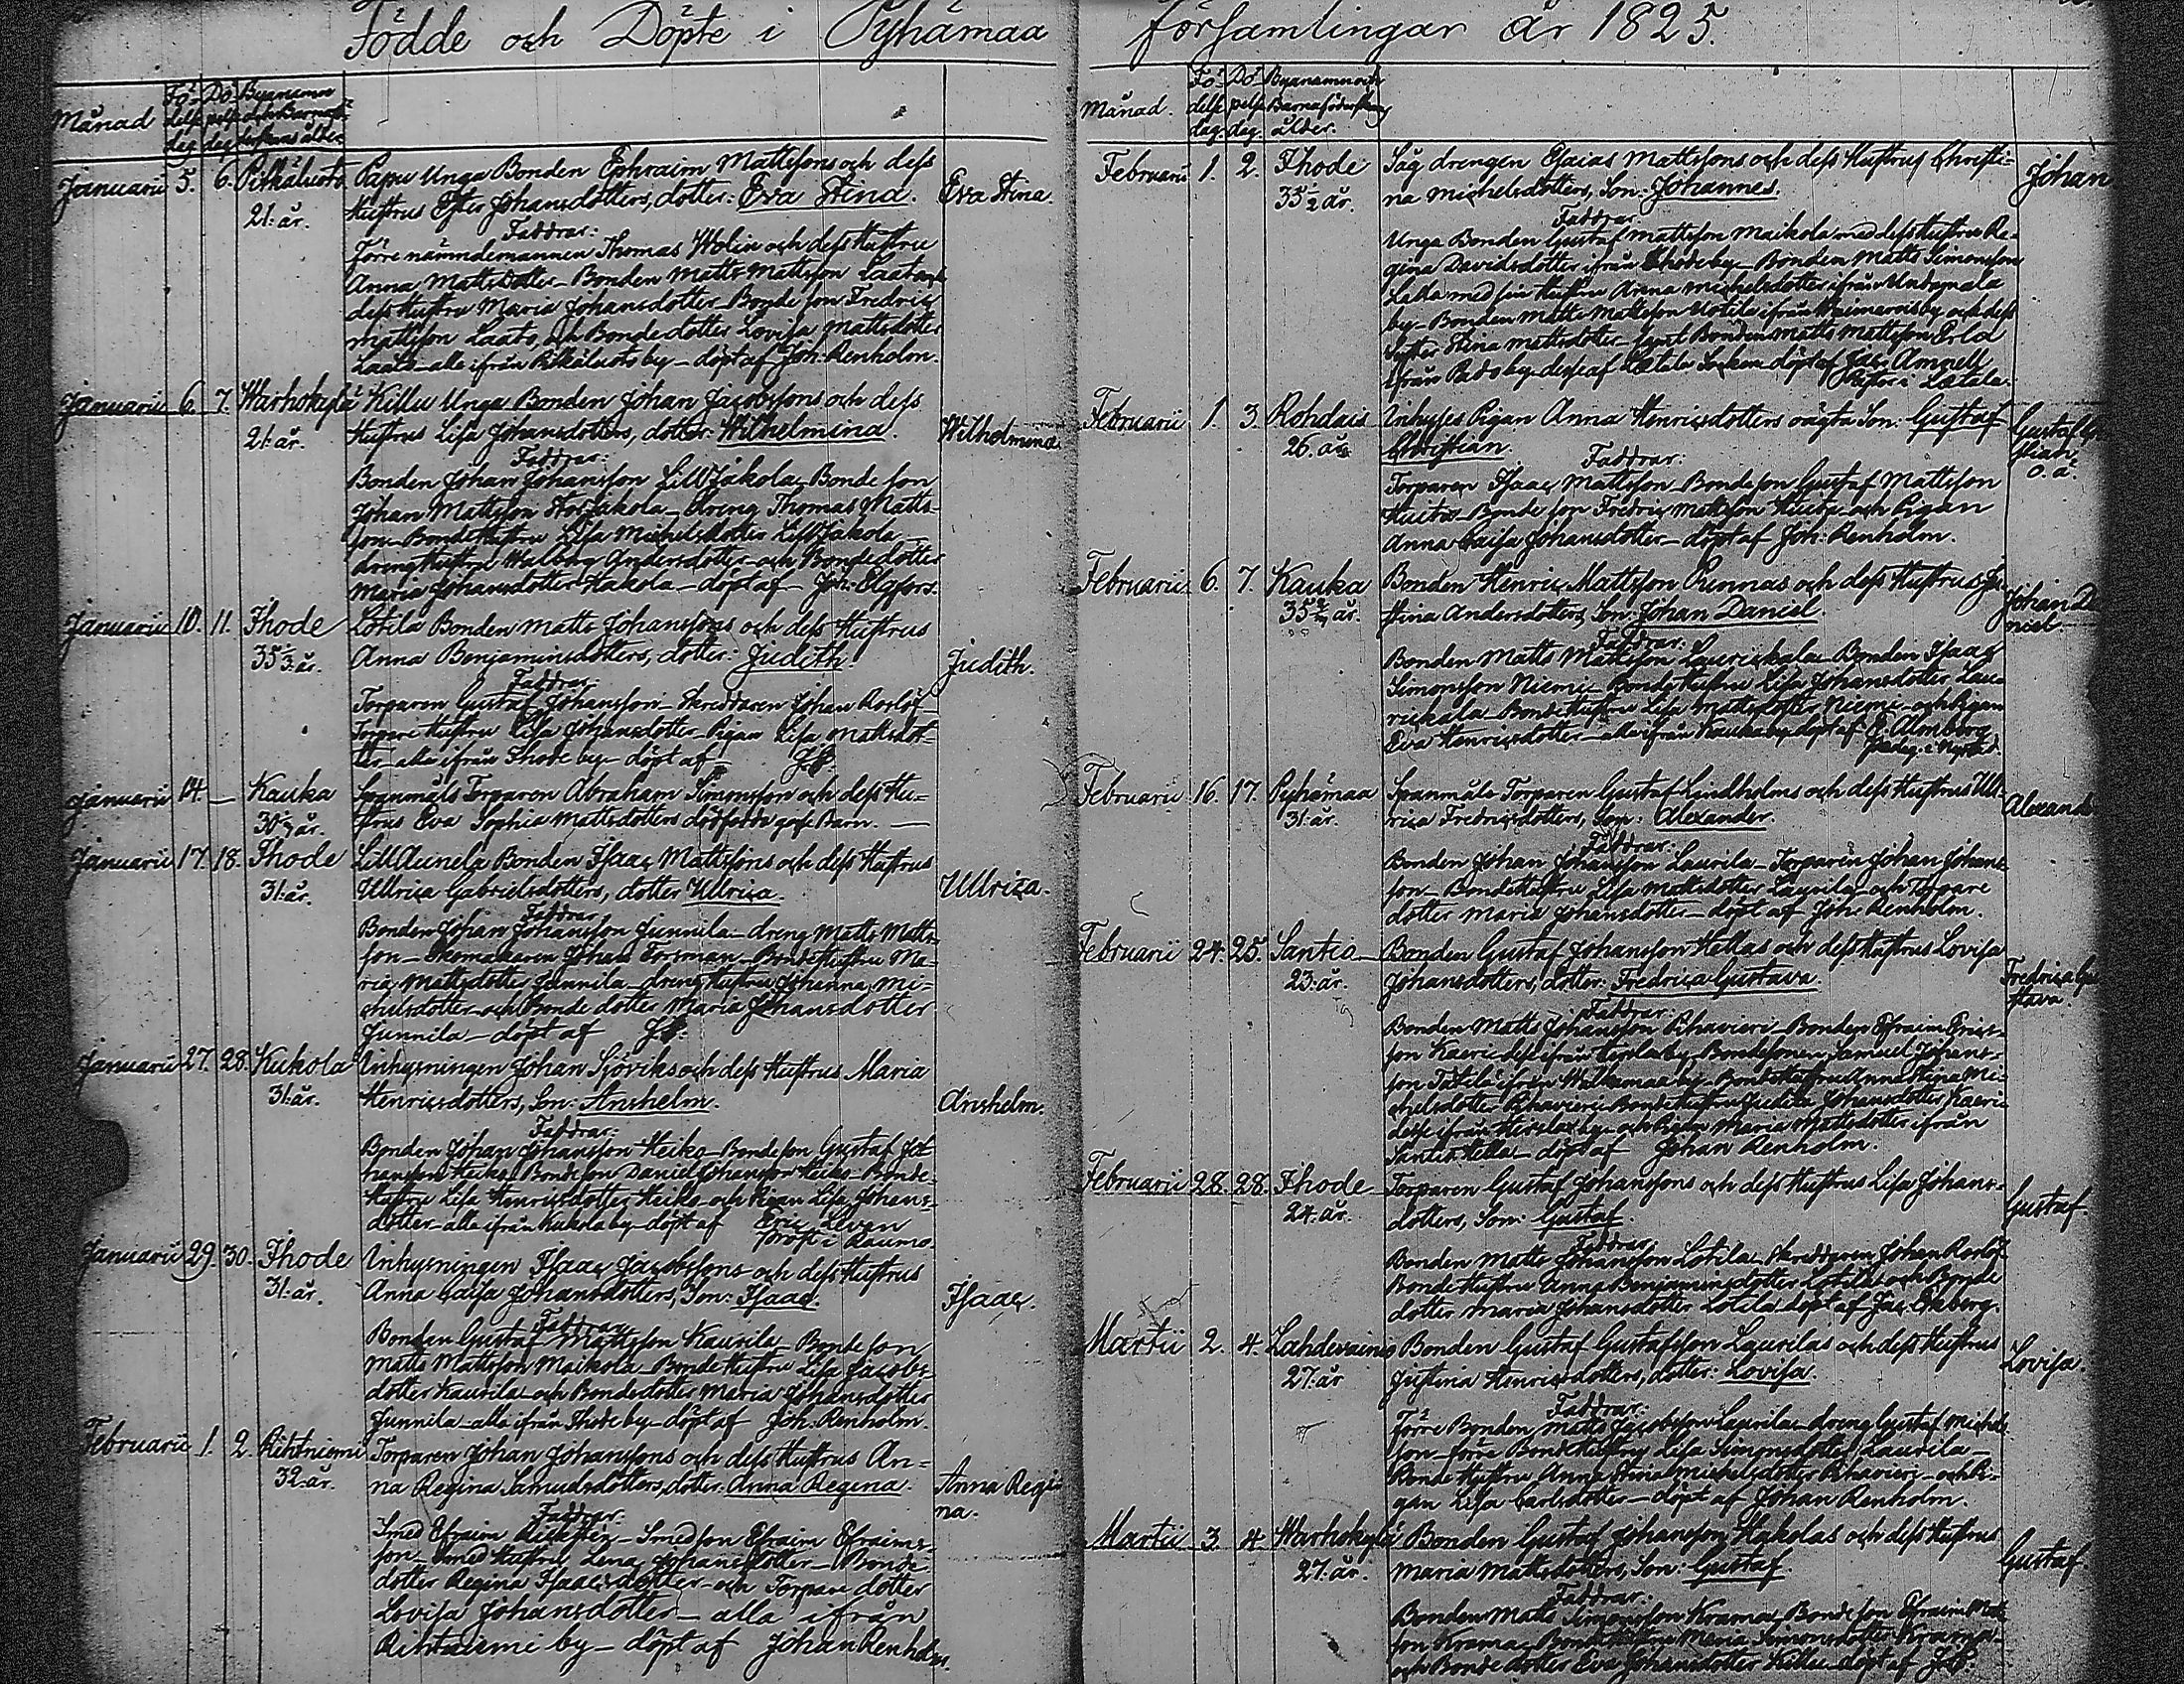 Födde och Döpte i Pyhämaa församlingar år 1825.
Månad Fö-delse dag Dö-pelse dag Byanamn
Januarii 5. 6. Pitkäluoto 21. år.
Papu Unga Bonden Ephraim Mattssons och dess
Hustrus Ester Johansdotters, dotter: Eva Stina. Eva Stina.
Faddrar:
Förre nämndemannen Thomas Wolin och dess Hustru
Anna Mattsdotter - Bonden Matts Mattsson Laato och
dess Hustru Maria Johansdotter - Bonde son Fredric
Mattsson Laato, och Bondedotter Lovisa Mattsdotter
Laato - alla ifrån Pitkäluoto by - döpt af Joh. Renholm.
Januarii 6. 7. Warhokylä 21. år.
Killu Unga Bonden Johan Jacobssons och dess
Hustrus Lisa Johansdotters, dotter: Wilhelmina. Wilhelmina
Faddrar:
Bonden Johan Johansson Lilljakola, Bonde son
Johan Mattsson Storjakola - dreng Thomas Matts-
son - BondeHustru Lisa Michelsdotter Lilljakola -
dreng Hustru Walborg Andersdotter - och Bondedotter
Maria Johansdotter Hakola - döpt af Joh. Elgfors.
Januarii 10. 11. Ihode 35 1/3 år.
Lotila Bonden Matts Johanssons och dess Hustrus
Anna Benjaminsdotters, dotter: Judith. Judith.
Faddrar:
Torparen Gustaf Johansson - Skreddaren Johan Korlöf
Torpare Hustru Lisa Johansdotter - Pigan Lisa Mattsdot-
ter - alla ifrån Ihode by - döpt af
Januarii 14. — Kauka
Torparen Abraham Simonsson och dess Hu-
strus Eva Sophia Mattsdotters dödfödda Barn. —
Januarii 17. 18. Ihode 31. år.
Bonden Isaac Mattssons och dess Hustrus
Ullrica Gabrielsdotters, dotter Ullrica. Ullrica.
Faddrar
Bonden Johan Johansson Junnila - dreng Matts Matts-
son - Skomakaren Johan Forsman - BondeHustru Ma-
ria Mattsdotter Junnila - dreng Hustru Johanna Mi-
chelsdotter - och Bonde dotter Maria Johansdotter
Junnila - döpt af
Januarii 27. 28. Kukola 31. år.
Inhysningen Johan Sjöviks och dess Hustrus Maria
Henricsdotters, Son: Anshelm. Anshelm.
Faddrar:
Bonden Johan Johansson Heiko - Bondeson Gustaf Jo-
hansson Heiko, Bondeson Daniel Johansson Heiko - Bonde-
Hustru Lisa Henricsdotter Heiko - och Pigan Lisa Johans-
dotter - alla ifrån Kukola by - döpt af Eric Levan
Prost i Raumo.
Januarii 29. 30. Ihode 31. år.
Inhysningen Isaac Jacobssons och dess Hustrus
Anna Caisa Johansdotters, Son: Isaac. Isaac.
Faddrar
Bonden Gustaf Mattsson Kaurila Bonde son
Matts Mattsson Maikola - BondeHustru Lisa Jacobs-
dotter Kaurila - och Bondedotter Maria Johansdotter
Junnila - alla ifrån Ihode by - döpt af Joh. Renholm.
Februarii 1. 2. Rihtniemi 32. år.
Torparen Johan Johanssons och dess Hustrus An-
na Regina Samuelsdotters, dotter: Anna Regina. Anna Regi-
na.
Faddrar.
Smed Efraim - Smedson Efraim Efraims-
son - Smed Hustru Lena Johansdotter - Bonde-
dotter Regina Isaacsdotter - och Torpare dotter
Lovisa Johansdotter - alla ifrån
Rihtniemi by - döpt af Johan Renholm.
Månad. Fö-delse dag. Dö-pelse dag. Byanamn och Barnaföderskans ålder.
Februarii 1. 2. Ihode 35 1/2 år.
Säg drengen Esaias Mattssons och dess Hustrus Christi-
na Michelsdotters, Son: Johannes. Johan
Faddrar.
Unga Bonden Gustaf Mattsson Maikola med dess Hustru Re-
gina Davidsdotter ifrån Ihode by - Bonden Matts Simonsson
Lalla med sin Hustru Anna Michelsdotter ifrån
by - Bonden Matts Mattsson Uotila ifrån och dess
Syster Stina Mattsdotter - samt Bonden Matts Mattsson Erlä
ifrån by dese af Letala Socken döpt af Jac. Amnell
i Letala.
Februarii 1. 3. Rohdais 26. år
Inhyses Pigan Anna Henricsdotters oägta Son: Gustaf
Christian. Gustaf Chri-
stian.
o. ä.
Faddrar:
Torparen Isaac Mattsson - Bondeson Gustaf Mattsson
- Bonde son Fredric Mattsson - och Pigan
Anna Caisa Johansdotter - döpt af Joh. Renholm.
Februarii 6. 7. Kauka
Bonden Henric Mattsson Runnas och dess Hustrus Ju-
stina Andersdotters, Son: Johan Daniel. Johan Da-
niel.
Faddrar.
Bonden Matts Mattsson Laurickala - Bonden Isaac
Simonsson Niemi - Bonde Hustru Lisa Johansdotter Lau-
rickala - BondeHustru Lisa Mattsdotter Niemi - och Pigan
Eva Henricsdotter - alla ifrån Kauka by, döpt af E. Almberg
Pædag. i Nystad.
Februarii 16. 17. Pyhämaa 31. år.
Spanmåls Torparen Gustaf Lindholms och dess Hustrus Ull-
rica Fredricsdotters, Son: Alexander. Alexande
Faddrar:
Bonden Johan Johansson Laurila - Torparen Johan Johans-
son - Bonde Hustru Lisa Mattsdotter Laurila - och Torpare
dotter Maria Johansdotter - döpt af Joh. Renholm.
Februarii 24. 25. Santio 23. år.
Bonden Gustaf Johansson Hellas och dess Hustrus Lovisa
Johansdotters, dotter: Fredrica Gustava. Fredrica Gu-
stava.
Faddrar:
Bonden Matts Johansson Rihavieri - Bonden Efraim Erics-
son Kaeri - Bondesonen Samuel Johans-
son - BondeHustru Anna Stina Mi-
chelsdotter Rihavieri - Bonde Hustru Judita Johansdotter Kaeri
Maria Mattsdotter ifrån
Santio Hellas - döpt af Johan Renholm.
Februarii 28. 28. Ihode 24. år.
Torparen Gustaf Johanssons och dess Hustrus Lisa Johans-
dotters, Son: Gustaf. Gustaf.
Faddrar:
Bonden Matts Johansson Lotila - Skreddaren Johan Korlöf
Bonde Hustru Anna Benjaminsdotter Lotila - och Bonde
dotter Maria Johansdotter Lotila döpt af Jac. Ekberg.
Martii 2. 4. Lahdevainio 27. år
Bonden Gustaf Gustafsson Laurilas och dess Hustrus
Justina Henricsdotters, dotter: Lovisa. Lovisa.
Faddrar:
Förre Bonden Matts Jacobsson Laurila - dreng Gustaf Michels-
son - förra BondeHustru Lisa Simonsdotter Laurila -
Bonde Hustru Anna Stina Michelsdotter Rihavieri - och Pi-
gan Lisa Carlsdotter - döpt af Johan Renholm.
Martii 3. 4 Warhokylä 27. år.
Bonden Gustaf Johansson Hakolas och dess Hustrus
Maria Mattsdotters, Son: Gustaf. Gustaf.
Faddrar:
Bonden Matts Simonsson Krama, Bonde son Efraim Matts-
son Krama, BondeHustru Maria Simonsdotter Krama -
och Bonde dotter Eva Johansdotter Killu - döpt af